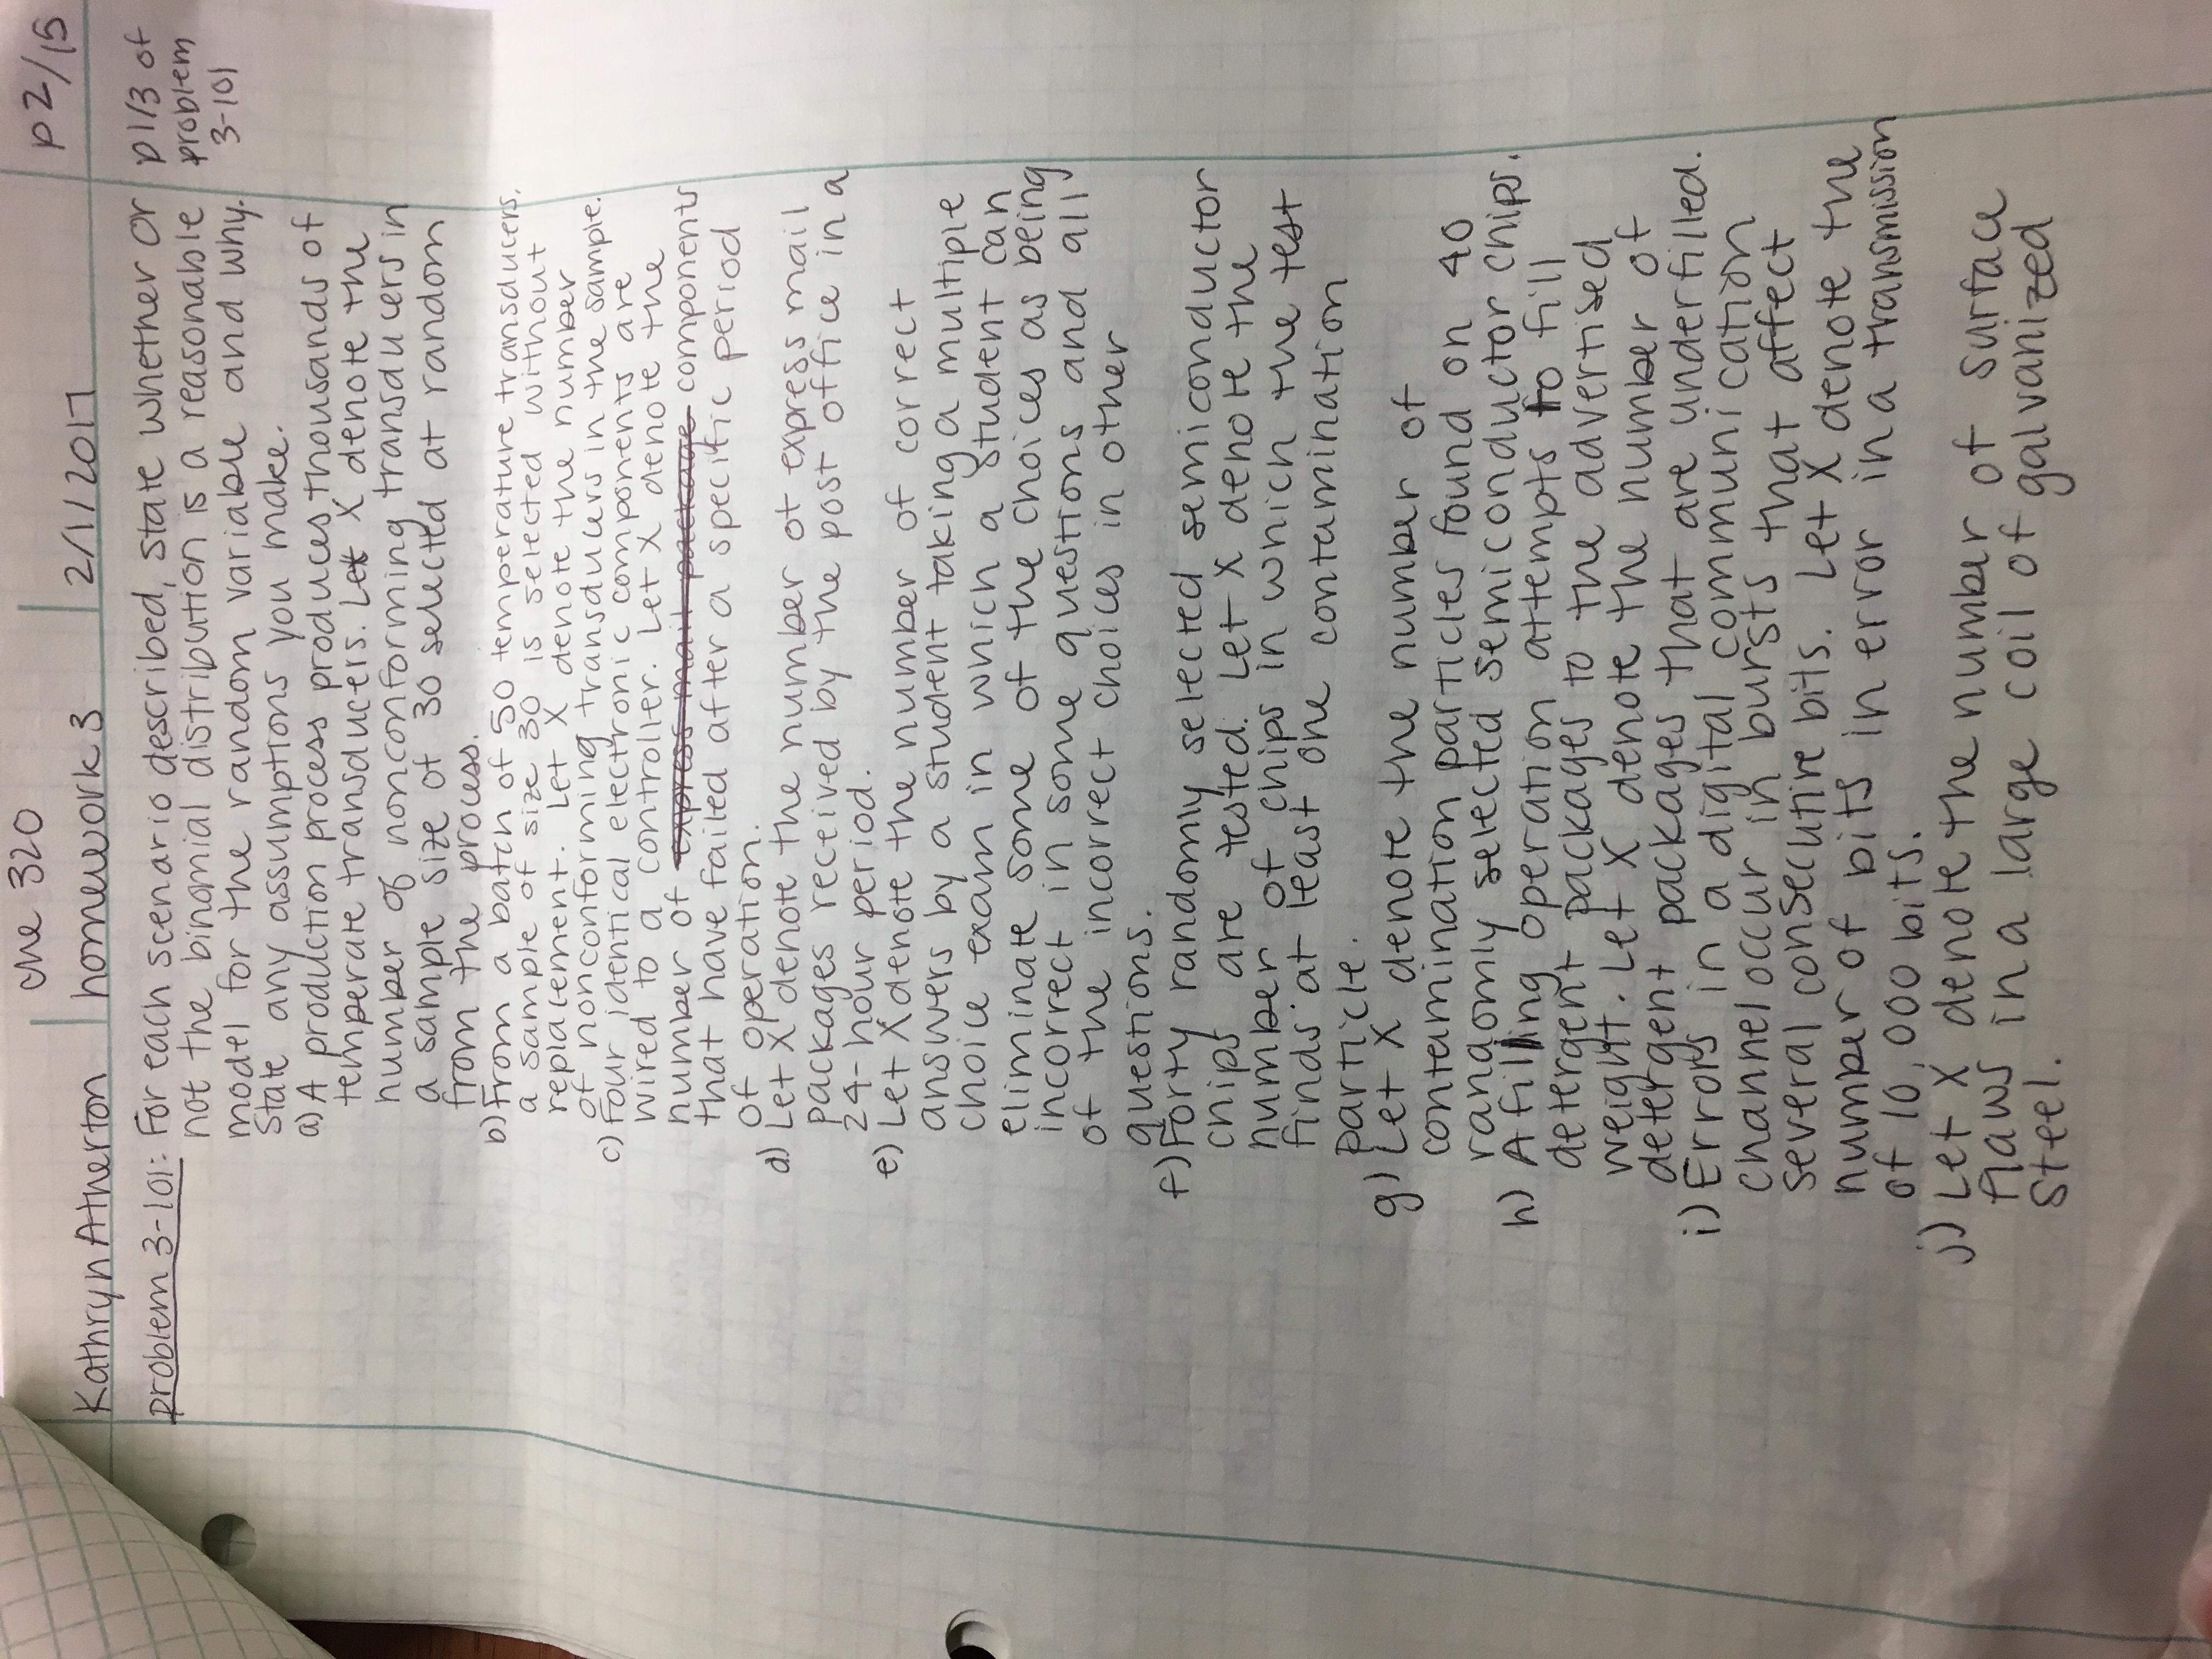 che 320
Kathryn Atherton homework 3 2/1/2017 p2/15
problem 3-101: For each scenario described, state whether or p1/3 of
not the binomial distribution is a reasonable problem
model for the random variable and why. 3-101
State any assumptions you make.
a) A production process produces thousands of
temperate transducers. Let X denote the
number of nonconforming transducers in
a sample size of 30 selected at random
from the process.
b) From a batch of 50 temperature transducers,
a sample of size 30 is selected without
replacement. Let X denote the number
of nonconforming transducers in the sample.
c) Four identical electronic components are
wired to a controller. Let X denote the
number of express mail package components
that have failed after a specific period
of operation.
d) Let X denote the number of express mail
packages received by the post office in a
24-hour period.
e) Let X denote the number of correct
answers by a student taking a multiple
choice exam in which a student can
eliminate some of the choices as being
incorrect in some questions and all
of the incorrect choices in other
questions.
f) Forty randomly selected semiconductor
chips are tested. Let X denote the
number of chips in which the test
finds at least one contamination
particle.
g) Let X denote the number of
contamination particles found on 40
randomly selected semiconductor chips.
h) A filling operation attempts to fill
detergent packages to the advertised
weight. Let X denote the number of
detergent packages that are underfilled.
i) Errors in a digital communication
channel occur in bursts that affect
several consecutive bits. Let X denote the
number of bits in error in a transmission
of 10,000 bits.
j) Let X denote the number of surface
flaws in a large coil of galvanized
steel.